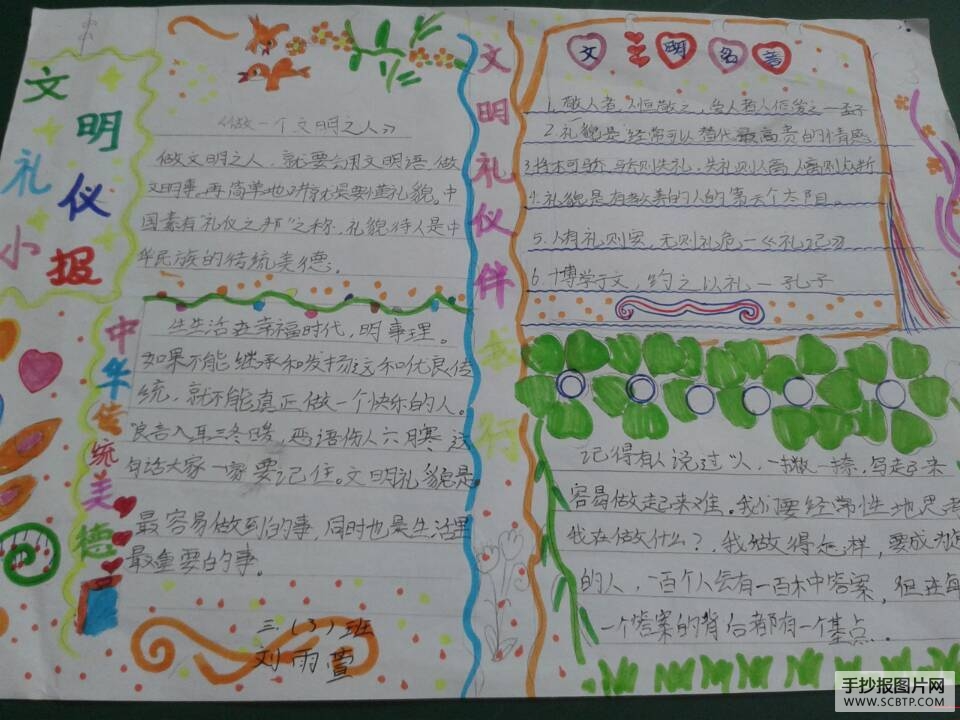 文明
礼仪
小报
《做一个文明之人》
做文明之人，就要会用文明语，做
文明事，再简单地讲就是要懂礼貌。中
国素有"礼仪之邦"之称，礼貌待人是中
华民族的传统美德。
中华传统美德
生活在幸福时代，明事理。
如果不能继承和发扬这和优良传
统，就不能真正做一个快乐的人。
良言入耳三冬暖，恶语伤人六月寒，这
句话大家一定要记住。文明礼貌是
最容易做到的事，同时也是生活里
最重要的事。
三（3）班
刘雨萱
文明礼仪伴我行
文明名言
1.敬人者，人恒敬之，爱人者人恒爱之—孟子
2.礼貌是经常可以替代最高贵的情感
3.骄则失礼，失礼则人离，人离则众叛
4.礼貌是有教养的人的第六个太阳。
5.人有礼则安，无则礼危—《礼记》
6.博学于文，约之以礼—孔子
记得有人说过"人，一撇一捺，写起来
容易做起来难。我们要经常性地思考
我在做什么？，我做得怎样，要成为
的人，一百个人会有一百种答案，但在每
一个答案的背后都有一个基点。
手抄报图片网
WWW.SCBTP.COM